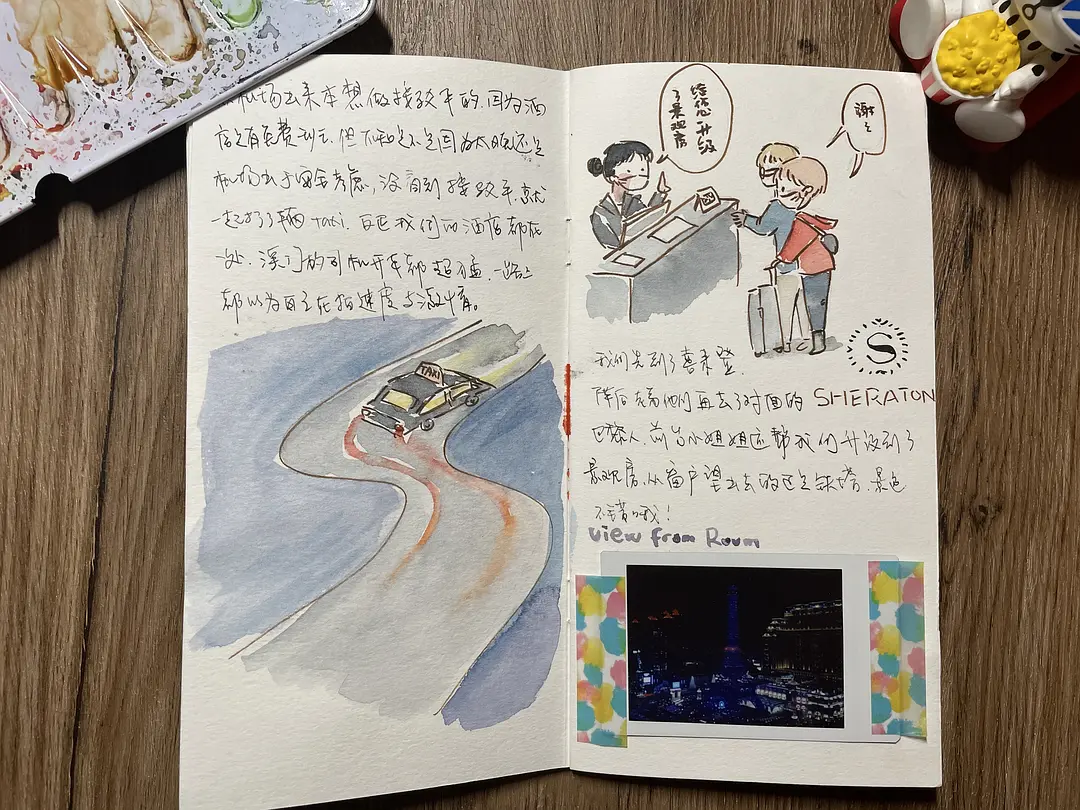 机场出来本想做接驳车的,因为酒
店是有免费班车,但不知是不是因为太晚还是
机场出于安全考虑,没有到接驳车,就
一起打了辆 taxi. 反正我们的酒店都在
一处.澳门的司机开车都超猛,一路上
都以为自己在拍速度与激情。
TAXI
给您升级
了景观房
谢谢
S
我们先到了喜来登,
陪后送他们再去了对面的 SHERATON
巴黎人,前台小姐姐还帮我们升级到了
景观房,从窗户望出去的还是铁塔,景色
不错哦!
View from Room